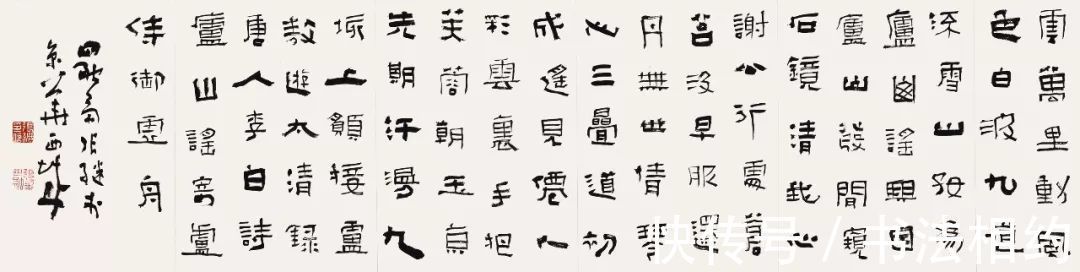 雲萬里動風
色白波九道
流雪山好為
廬山謠興因
廬山發閒窺
石鏡清我心
謝公行處蒼
苔没早服還
丹無世情琴
心三疊道初
成遙見僊人
彩雲裏手把
芙蓉朝玉京
先期汗漫九
垓上願接盧
敖遊太清錄
唐人李白詩
廬山謠寄盧
侍御虛舟
快传号 / 书法相约